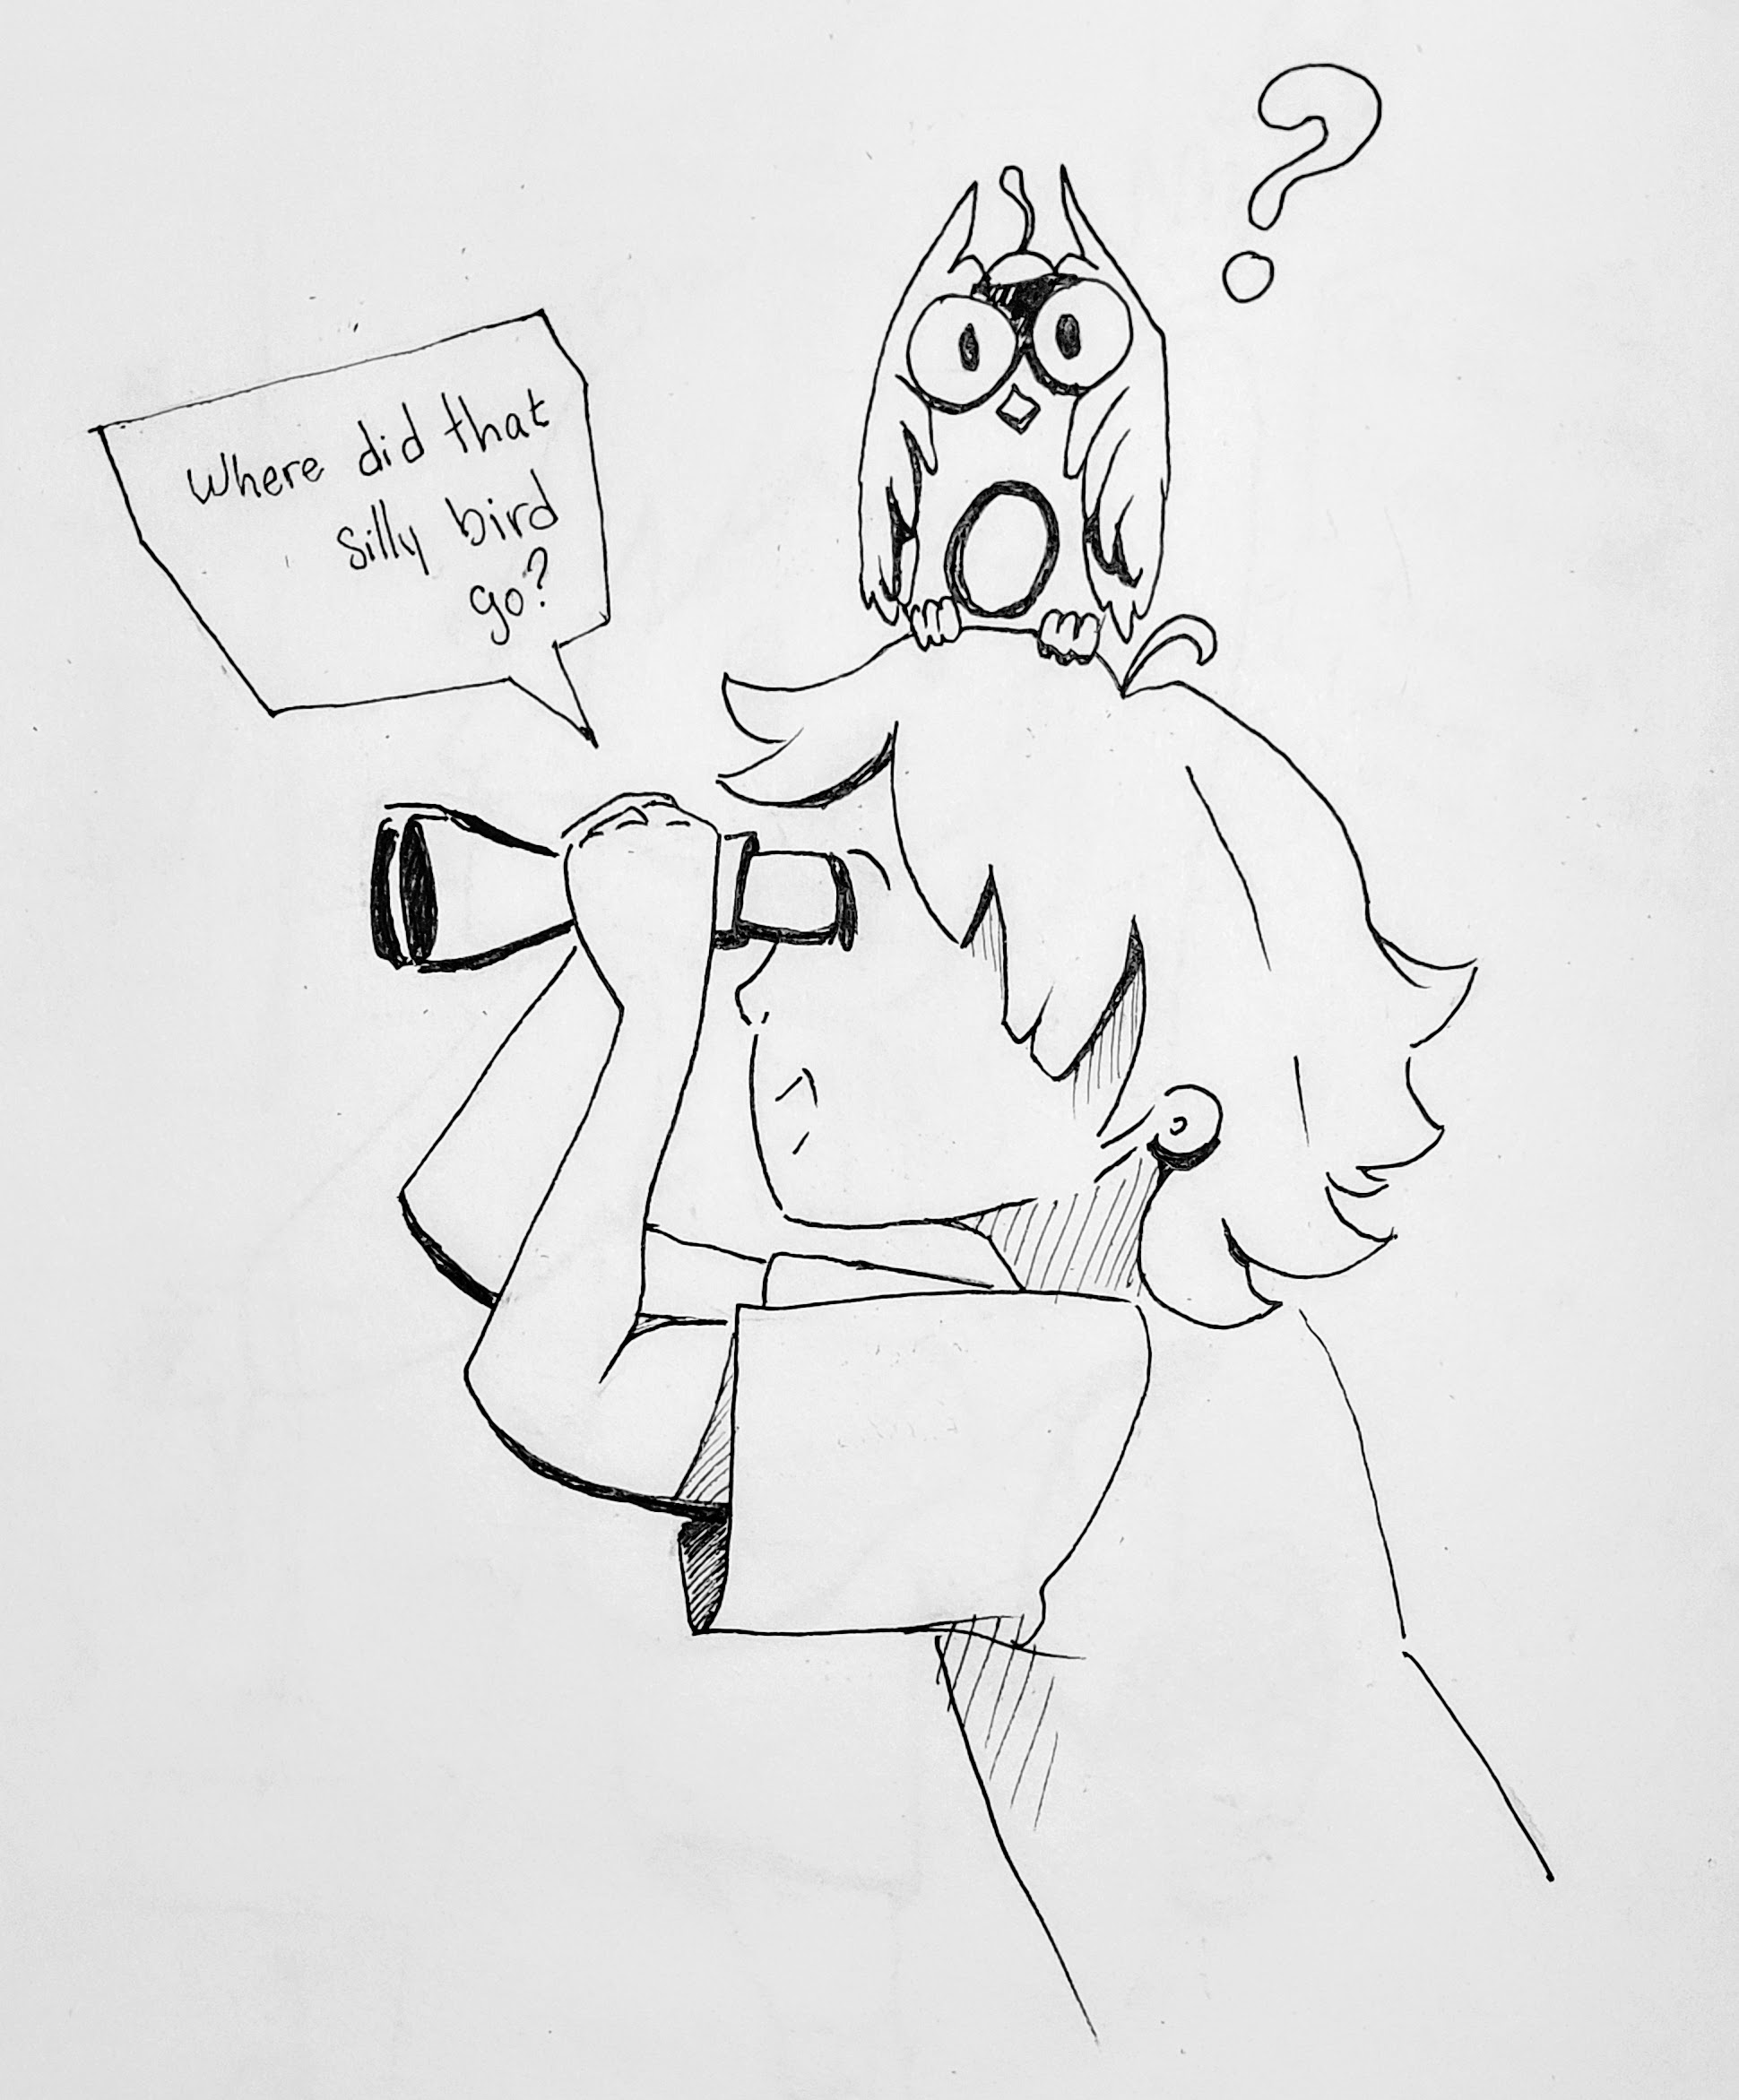 Where did that
silly bird
go?
?